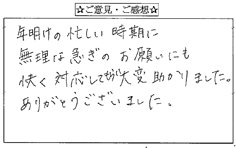 ☆ご意見・ご感想☆
年明けの忙しい時期に
無理な急ぎのお願いにも
快く対応してもらい大変助かりました。
ありがとうございました。